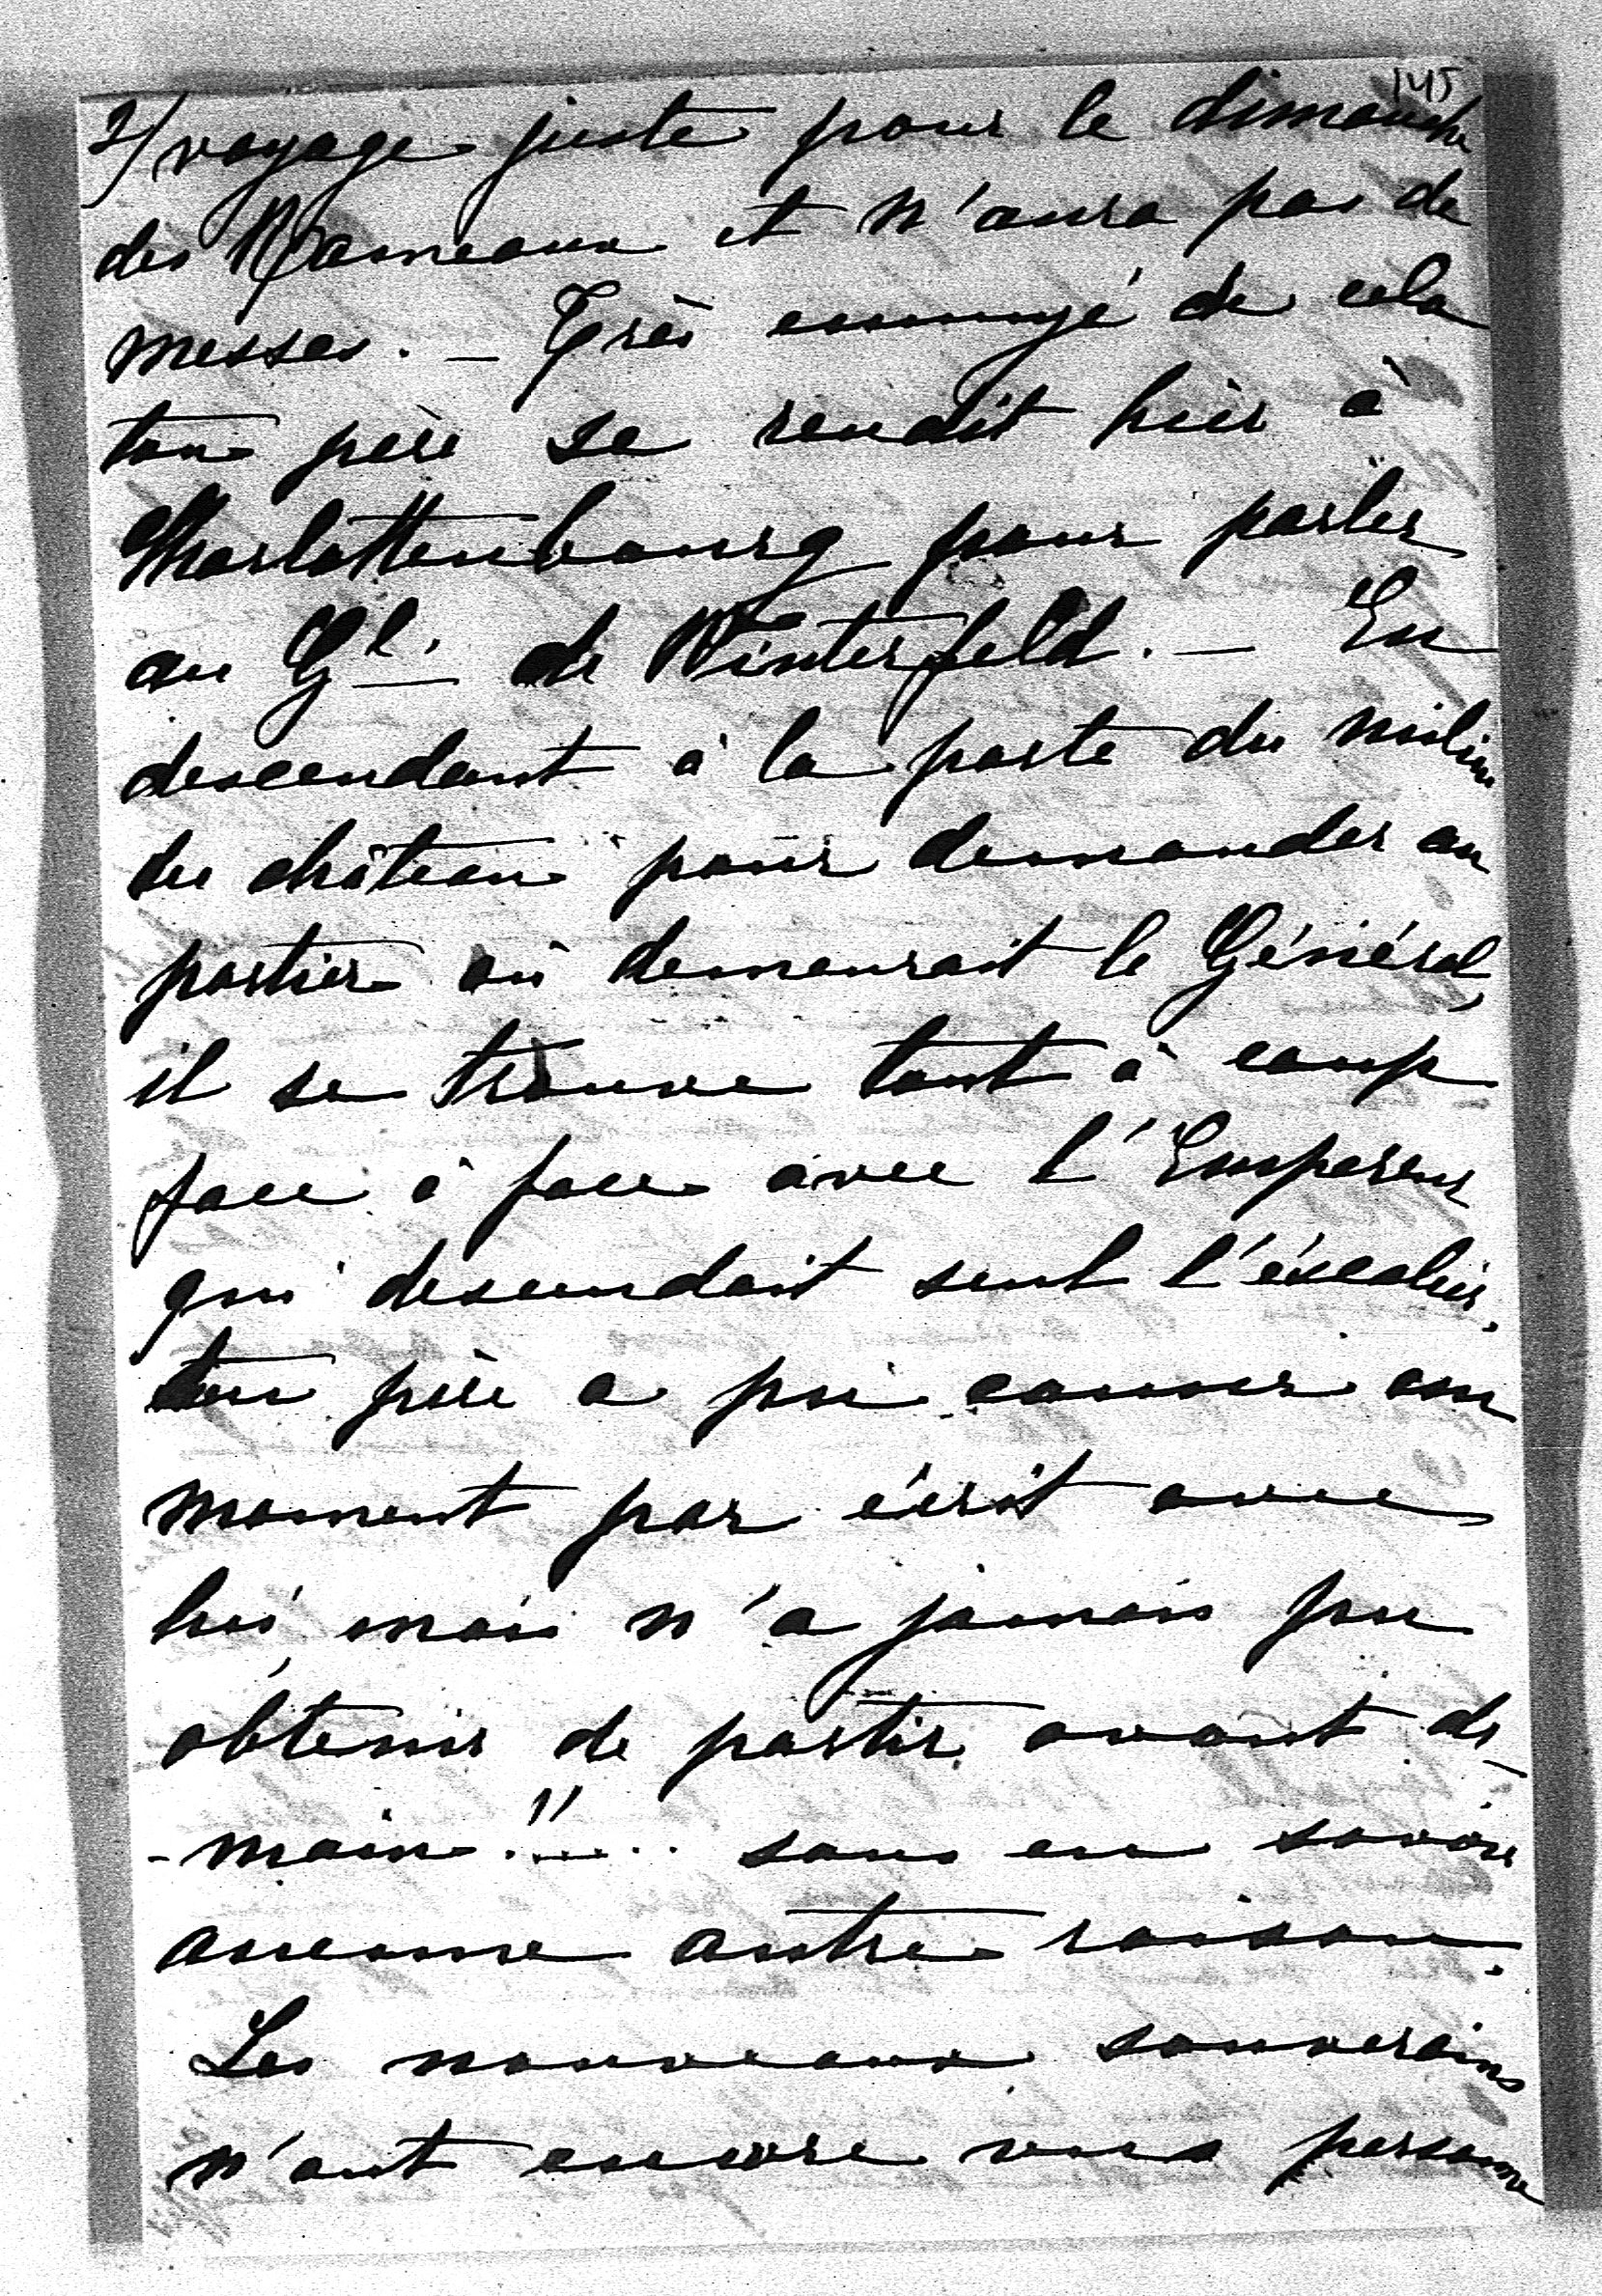 145
2/ voyage juste pour le dimanche
des Rameaux et n'aura pas de
messes. — Très ennuyé de cela
ton père se rendit hier à
Charlottenbourg pour parler
au Gl. de Winterfeld. — En
descendant à la porte du milieu
du château pour demander au
portier où demeurait le Général,
il se trouve tout à coup
face à face avec l'Empereur
qui descendait seul l'éscalier.
ton père a pu causer un
moment par écrit avec
lui mais n'a jamais pu
obtenir de partir avant de-
-main!!.... sans en savoir
aucune autre raison.
Les nouveaux souverains
n'ont encore vus personne